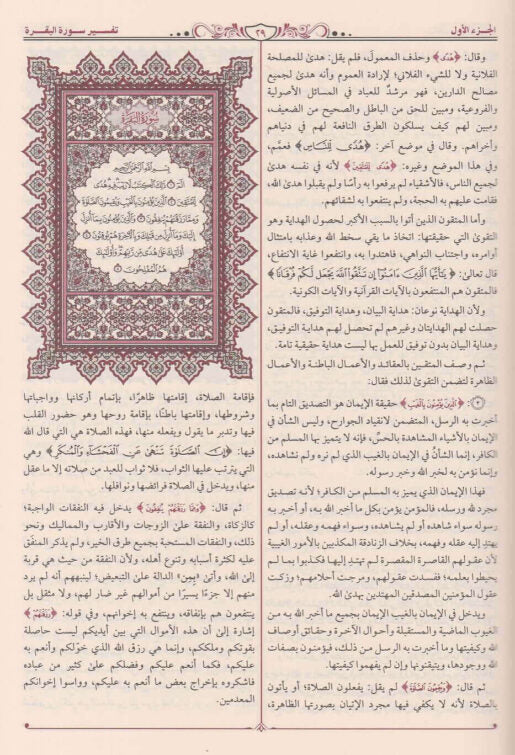 الجزء الأول
٢٩
تفسير سورة البقرة
وقال: ﴿هُدًى﴾ وحذف المعمول، فلم يقل: هدىً للمصلحة
الفلانية ولا للشيء الفلاني؛ لإرادة العموم وأنه هدىً لجميع
مصالح الدارين، فهو مرشدٌ للعباد في المسائل الأصولية
والفروعية، ومبين للحق من الباطل والصحيح من الضعيف،
ومبين لهم كيف يسلكون الطرق النافعة لهم في دنياهم
وأخراهم. وقال في موضع آخر: ﴿هُدًى لِّلنَّاسِ﴾ فعمَّم،
وفي هذا الموضع وغيره: ﴿هُدًى لِّلْمُتَّقِينَ﴾ لأنه في نفسه هدىً
لجميع الناس، فالأشقياء لم يرفعوا به رأسًا ولم يقبلوا هدىٰ الله،
فقامت عليهم به الحجة، ولم ينتفعوا به لشقائهم.
وأما المتقون الذين أتوا بالسبب الأكبر لحصول الهداية وهو
التقوىٰ التي حقيقتها: اتخاذ ما يقي سخط الله وعذابه بامتثال
أوامره، واجتناب النواهي، فاهتدوا به، وانتفعوا غاية الانتفاع،
قال تعالىٰ: ﴿يَٰٓأَيُّهَا ٱلَّذِينَ ءَامَنُوٓا۟ إِن تَتَّقُوا۟ ٱللَّهَ يَجْعَل لَّكُمْ فُرْقَانًا﴾
فالمتقون هم المنتفعون بالآيات القرآنية والآيات الكونية.
ولأن الهداية نوعان: هداية البيان، وهداية التوفيق، فالمتقون
حصلت لهم الهدايتان وغيرهم لم تحصل لهم هداية التوفيق،
وهداية البيان بدون توفيق للعمل بها ليست هداية حقيقة تامة.
ثم وصف المتقين بالعقائد والأعمال الباطنة والأعمال
الظاهرة لتضمن التقوىٰ لذلك فقال:
﴿ٱلَّذِينَ يُؤْمِنُونَ بِٱلْغَيْبِ﴾ حقيقة الإيمان هو التصديق التام بما
أخبرت به الرسل، المتضمن لانقياد الجوارح، وليس الشأن في
الإيمان بالأشياء المشاهدة بالحسِّ، فإنه لا يتميز بها المسلم من
الكافر، إنما الشأنُ في الإيمان بالغيب الذي لم نره ولم نشاهده،
وإنما نؤمن به لخبر الله وخبر رسوله.
فهذا الإيمان الذي يميز به المسلم من الكافر؛ لأنه تصديق
مجرد لله ورسله، فالمؤمن يؤمن بكل ما أخبر الله بـه، أو أخبـر بـه
رسوله سواء شاهده أو لم يشاهده، وسواء فهمه وعقله، أو لـم
يهتدِ إليه عقله وفهمه، بخلاف الزنادقة المكذبين بالأمور الغيبية
لأن عقولهم القاصرة المقصرة لـم تهتـدِ إليهـا فكذبوا بمـا لـم
يحيطوا بعلمه؛ ففسدت عقولهم، ومرجت أحلامهم؛ وزكت
عقول المؤمنين المصدقين المهتدين بهدىٰ الله.
ويدخل في الإيمان بالغيب الإيمان بجميع ما أخبر الله به من
الغيوب الماضية والمستقبلة وأحوال الآخرة وحقائق أوصاف
الله وكيفيتها وما أخبرت به الرسل من ذلك، فيؤمنون بصفات
الله ووجودها، ويتيقنونها وإن لم يفهموا كيفيتها.
ثم قال: ﴿وَيُقِيمُونَ ٱلصَّلَوٰةَ﴾ لم يقل: يفعلون الصلاة؛ أو يأتون
بالصلاة لأنه لا يكفي فيها مجرد الإتيان بصورتها الظاهرة،
سُورَةُ البَقَرَة
بِسْمِ اللَّهِ الرَّحْمَٰنِ الرَّحِيمِ
الٓمٓ ۝١ ذَٰلِكَ ٱلْكِتَٰبُ لَا رَيْبَ ۛ فِيهِ ۛ هُدًى
لِّلْمُتَّقِينَ ۝٢ ٱلَّذِينَ يُؤْمِنُونَ بِٱلْغَيْبِ وَيُقِيمُونَ ٱلصَّلَوٰةَ
وَمِمَّا رَزَقْنَٰهُمْ يُنفِقُونَ ۝٣ وَٱلَّذِينَ يُؤْمِنُونَ بِمَآ أُنزِلَ
إِلَيْكَ وَمَآ أُنزِلَ مِن قَبْلِكَ وَبِٱلْءَاخِرَةِ هُمْ يُوقِنُونَ ۝٤
أُو۟لَٰٓئِكَ عَلَىٰ هُدًى مِّن رَّبِّهِمْ ۖ وَأُو۟لَٰٓئِكَ
هُمُ ٱلْمُفْلِحُونَ ۝٥
فإقامة الصلاة، إقامتها ظاهرًا، بإتمام أركانها وواجباتها
وشروطها، وإقامتها باطنًا، بإقامة روحها وهو حضور القلب
فيها وتدبر ما يقول ويفعله منها، فهذه الصلاة هي التي قال الله
فيها: ﴿إِنَّ ٱلصَّلَوٰةَ تَنْهَىٰ عَنِ ٱلْفَحْشَآءِ وَٱلْمُنكَرِ﴾ وهي
التي يترتب عليها الثواب، فلا ثواب للعبد من صلاته إلا ما عقل
منها، ويدخل في الصلاة فرائضها ونوافلها.
ثم قال: ﴿وَمِمَّا رَزَقْنَٰهُمْ يُنفِقُونَ﴾ يدخل فيه النفقات الواجبة؛
كالزكاة، والنفقة علىٰ الزوجات والأقارب والمماليك ونحو
ذلك، والنفقات المستحبة بجميع طرق الخير، ولم يذكر المنفَق
عليه لكثرة أسبابه وتنوع أهله، ولأن النفقة من حيث هي قربة
إلىٰ الله، وأتىٰ «بِمِن» الدالة علىٰ التبعيض؛ لينبههم أنه لم يرد
منهم إلا جزءًا يسيرًا من أموالهم غير ضار لهم، ولا مثقل بل
ينتفعون هم بإنفاقه، وينتفع به إخوانهم، وفي قوله: ﴿رَزَقْنَٰهُمْ﴾
إشارة إلىٰ أن هذه الأموال التي بين أيديكم ليست حاصلة
بقوتكم وملككم، وإنما هي رزق الله الذي خوّلكم وأنعم به
عليكم، فكما أنعم عليكم وفضلكم علىٰ كثير من عباده
فاشكروه بإخراج بعض ما أنعم به عليكم، وواسوا إخوانكم
المعدمين.